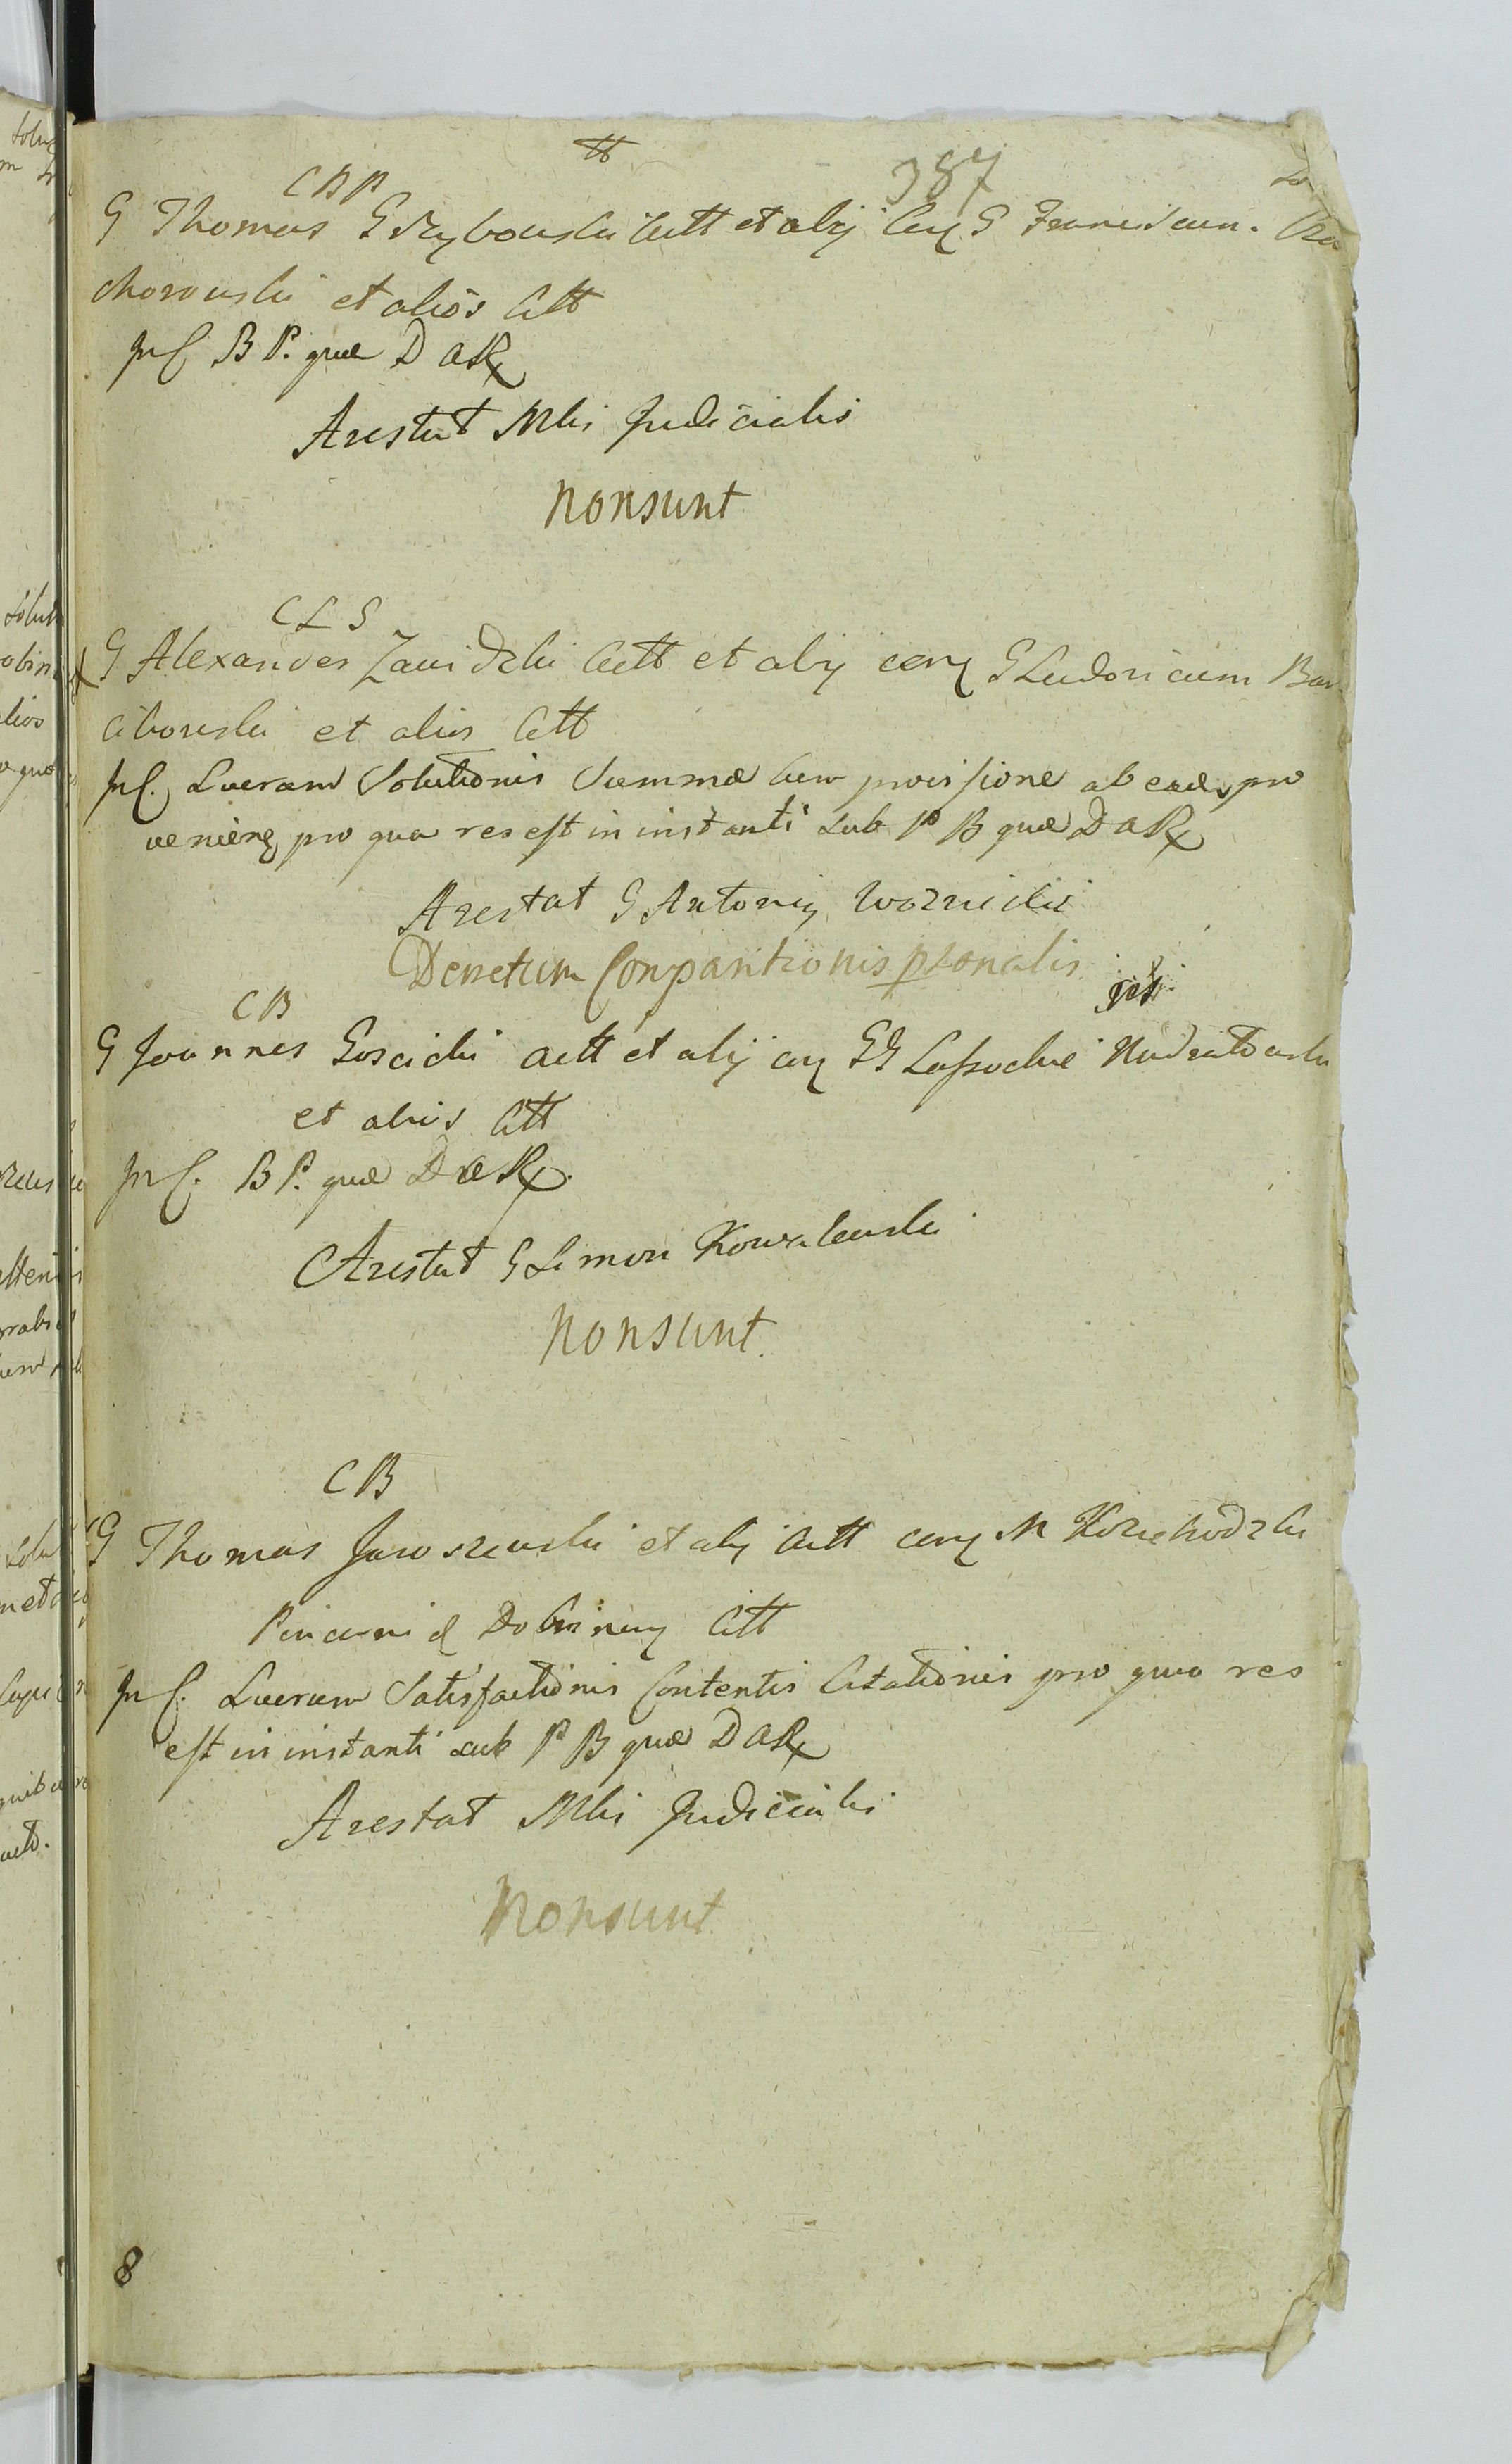 387
CBP
G Thomas Grzybowski Actt et alij cum G Franciscum
chorowski et alios Citt
In C B P. quæ D a Rx
Arestat Mtis Judicialis
Nonsunt
CLS
G Alexander Zawidzki Actt et alij cum G Ludovicum Bar
cibowski et alios Citt
In C. Lucrum Solutionis Summæ cum provisione ab eade pro
venien pro qua res est in instanti sub P B quæ D a Rx
Arestat G Antonius Woznicki
Decretum Comparitionis psonalis
CB
G Joannes Goscicki Actt et alij cum GG Lassockie
et alios Citt
In C. B P. quæ D a Rx
Arestat G Simon Kowalewski
Nonsunt
CB
G Thomas Jaroszewski et alij Actt cum M
Pincernid Dobrinen Citt
In C. Lucrum Satisfactionis Contentis Citationis pro qua res
est in instanti sub P B quæ D a Rx
Arestat Mtis Judicialis
Nonsunt
8